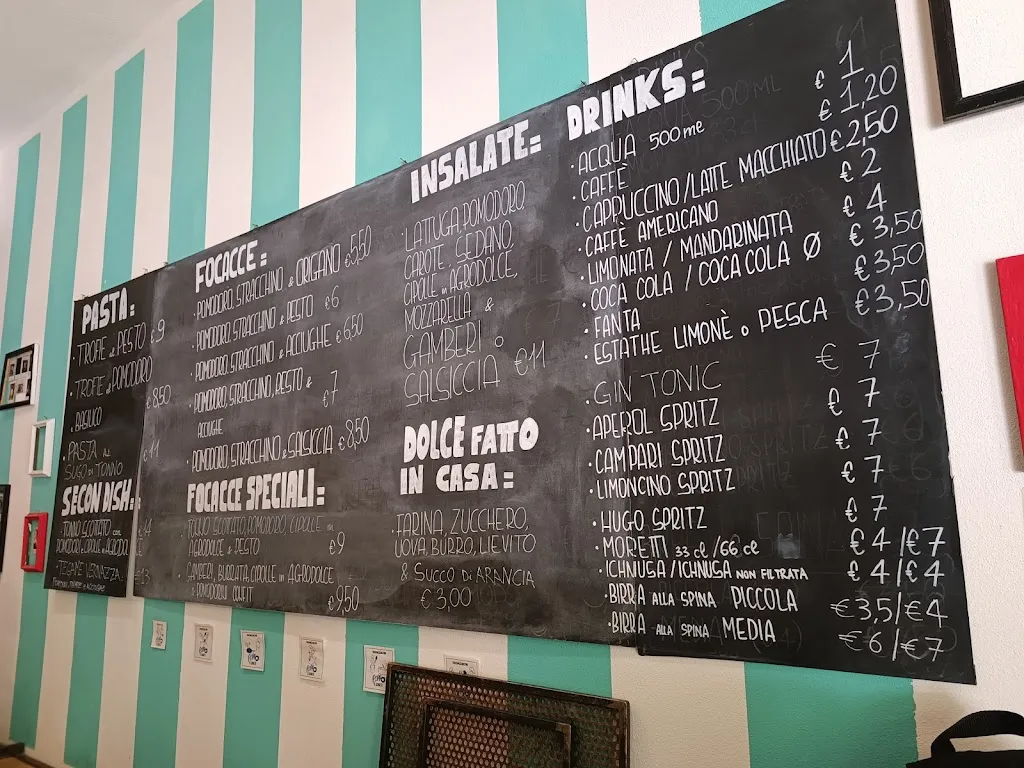 PASTA:
• TROFIE al PESTO €9
• TROFIE al POMODORO
& BASILICO €8,50
• PASTA AL
SUGO DI TONNO €11
SECON DISH:
• TONNO SCOTTATO con
POMODORI & CIPOLLE in AGRODOLCE €14
• TEGAME VERNAZZA €13
FOCACCE:
• POMODORO, STRACCHINO & ORIGANO €5,50
• POMODORO, STRACCHINO & PESTO €6
• POMODORO, STRACCHINO & ACCIUGHE €6,50
• POMODORO, STRACCHINO, PESTO &
ACCIUGHE €7
• POMODORO, STRACCHINO & SALSICCIA €8,50
FOCACCE SPECIALI:
• TONNO SCOTTATO, POMODORO, CIPOLLE in
AGRODOLCE & PESTO €9
• GAMBERI, BURRATA, CIPOLLE in AGRODOLCE
& POMODORINI CONFIT €9,50
INSALATE:
• LATTUGA, POMODORO
CAROTE, SEDANO,
CIPOLLE in AGRODOLCE,
MOZZARELLA &
GAMBERI o
SALSICCIA €11
DOLCE FATTO
IN CASA:
• FARINA, ZUCCHERO,
UOVA, BURRO, LIEVITO
& SUCCO DI ARANCIA
€3,00
DRINKS:
• ACQUA 500 ml €1
• CAFFÈ €1,20
• CAPPUCCINO/LATTE MACCHIATO €2,50
• CAFFÈ AMERICANO €2
• LIMONATA / MANDARINATA €4
• COCA COLA / COCA COLA Ø €3,50
• FANTA €3,50
• ESTATHE LIMONÈ o PESCA €3,50
• GIN TONIC €7
• APEROL SPRITZ €7
• CAMPARI SPRITZ €7
• LIMONCINO SPRITZ €7
• HUGO SPRITZ €7
• MORETTI 33 cl /66 cl €4/€7
• ICHNUSA /ICHNUSA NON FILTRATA €4/€4
• BIRRA ALLA SPINA PICCOLA €3,5/€4
• BIRRA ALLA SPINA MEDIA €6/€7